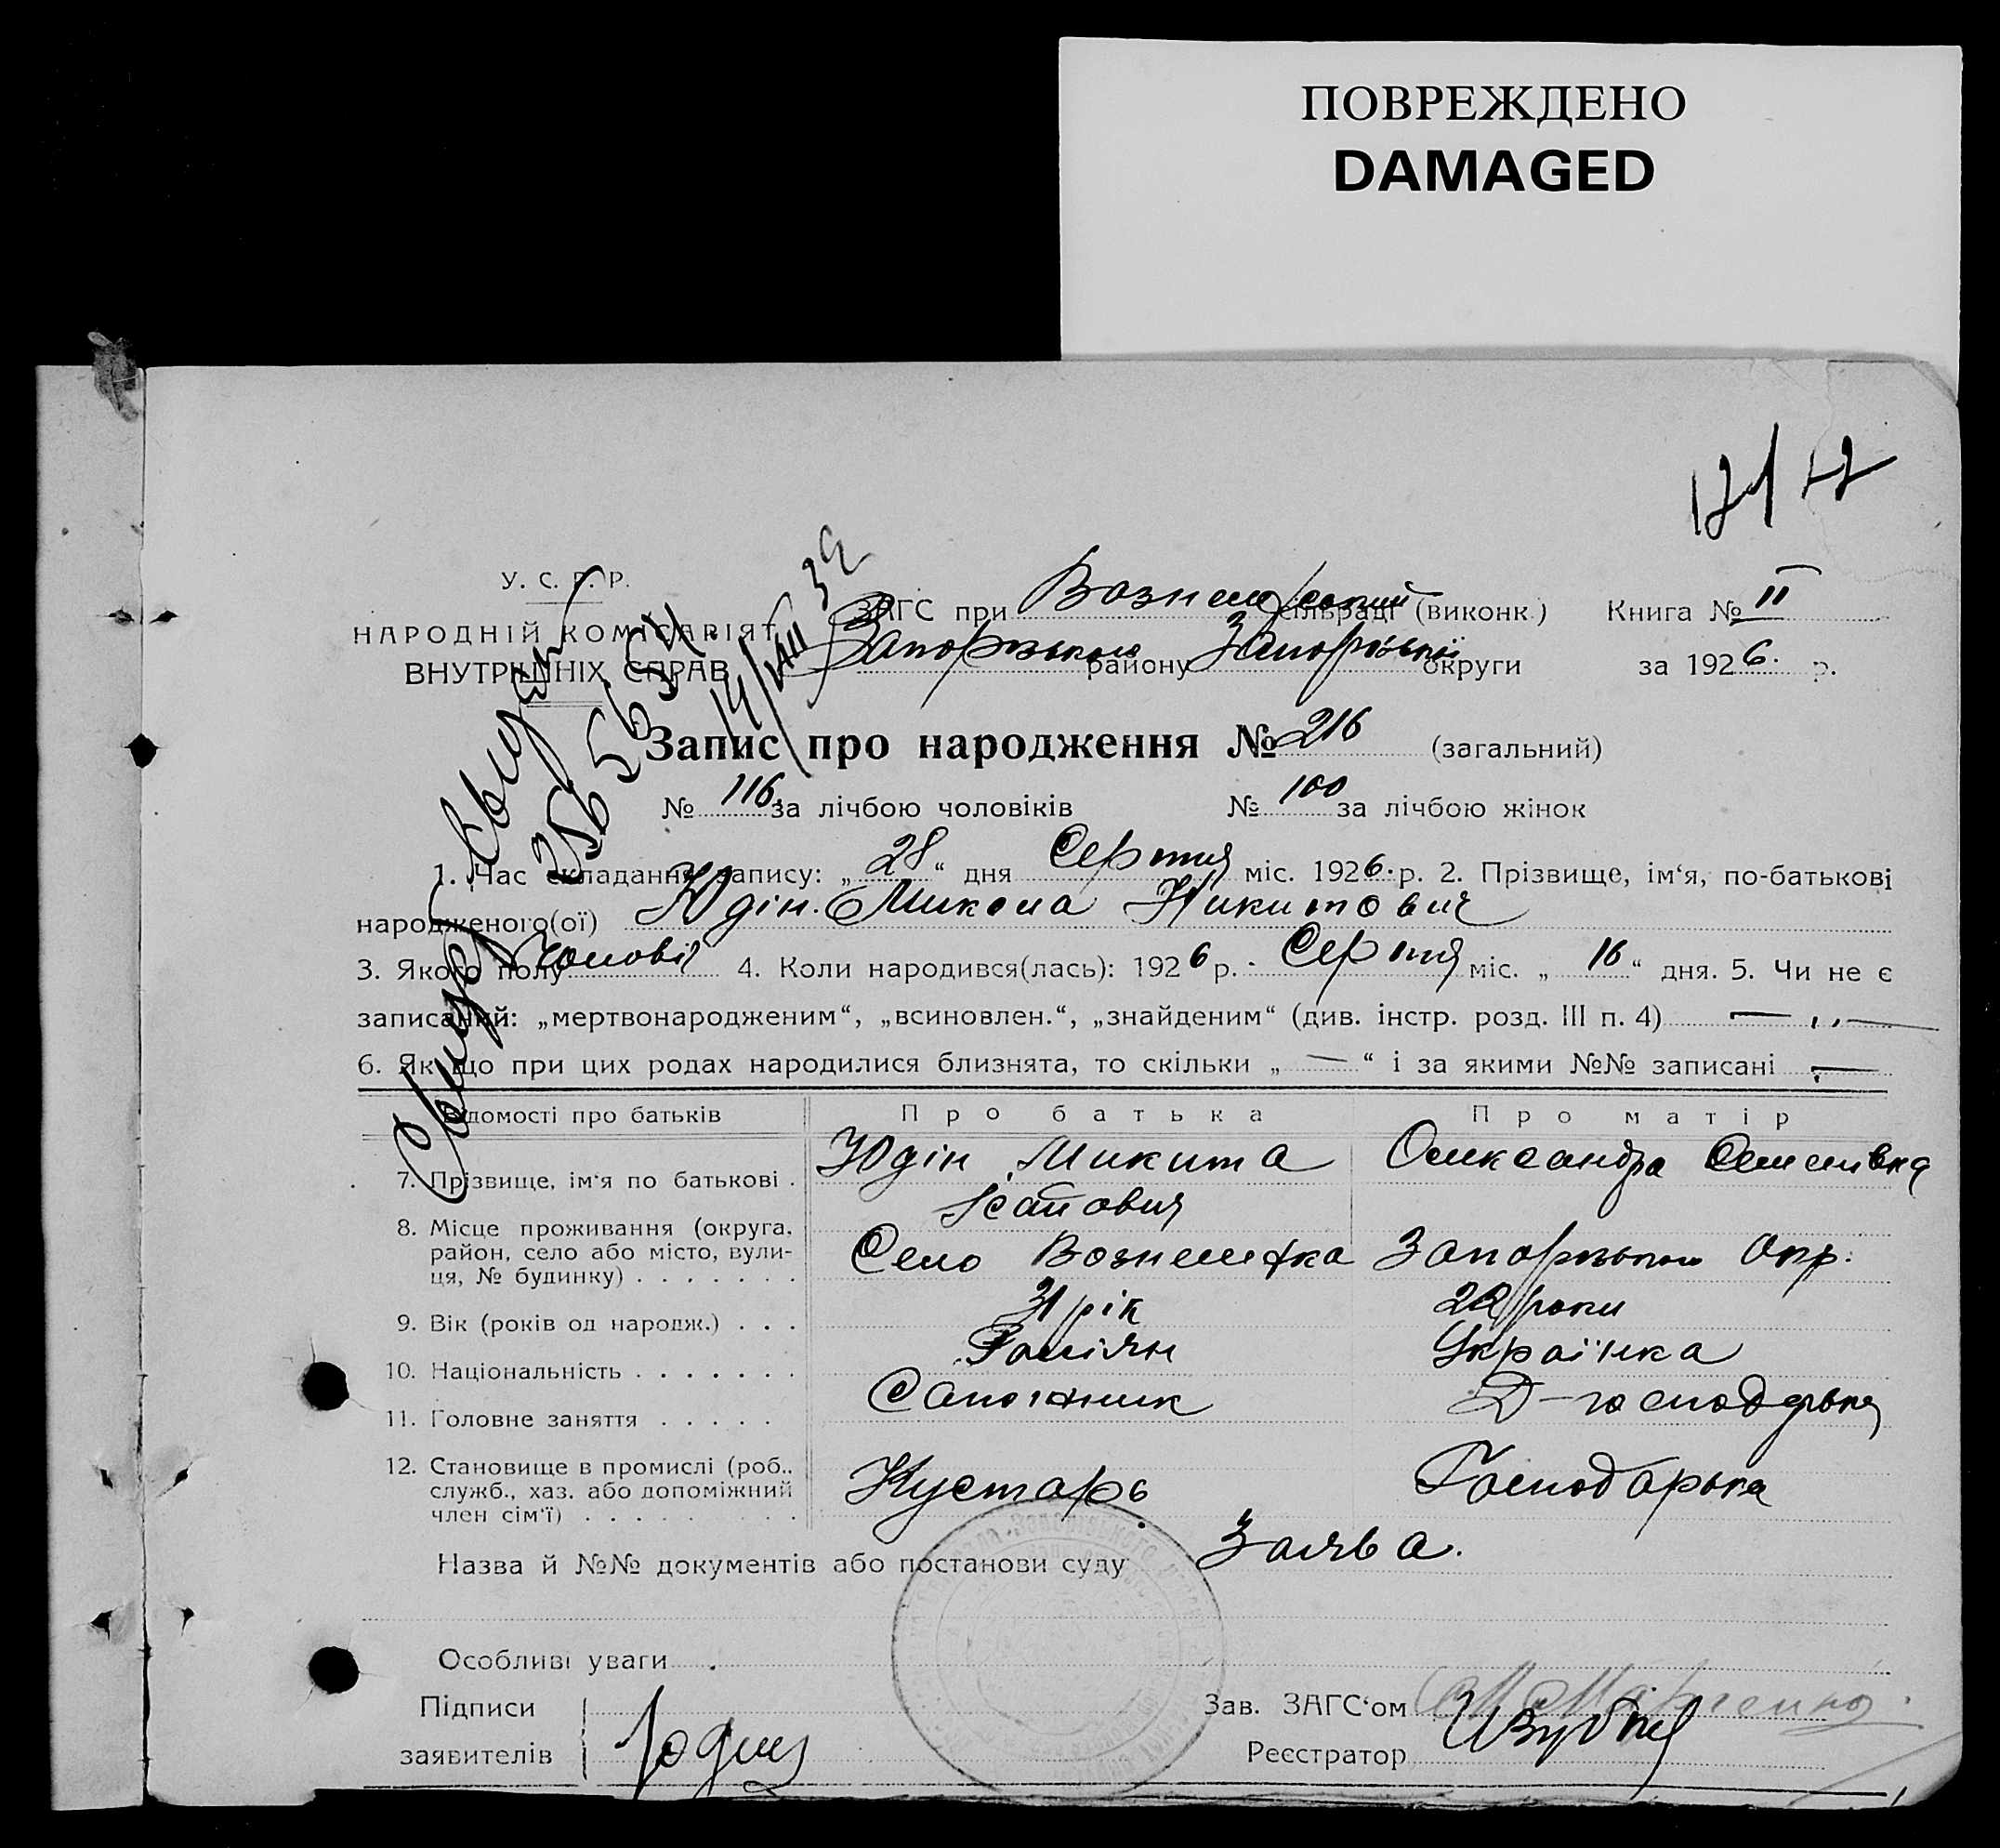 ПОВРЕЖДЕНО
DAMAGED
У. С. Р. Р.
НАРОДНІЙ КОМІСАРІЯТ
ВНУТРІШНІХ СПРАВ
ЗАГС при Вознесенський сільраді (виконк.) Книга № II
Запорізького району Запорізької округи за 1926. р.
Запис про народження № 216 (загальний)
№ 116 за лічбою чоловіків № 100 за лічбою жінок
1. Час складання запису: „28“ дня Серпня міс. 1926. р. 2. Прізвище, ім‘я, по-батькові
народженого(ої) Юдін. Микола Никитович
3. Якого полу Чоловік 4. Коли народився(лась): 1926 р. Серпня міс. „16“ дня. 5. Чи не є
записаний: „мертвонародженим“, „всиновлен.“, „знайденим“ (див. інстр. розд. III п. 4) — „ —
6. Як що при цих родах народилися близнята, то скільки „ — “ і за якими №№ записані —
Відомості про батьків Про батька Про матір
7. Прізвище, ім‘я по батькові . Юдін Микита Олександра Семенівна
8. Місце проживання (округа, район, село або місто, вулиця, № будинку) . . . . . . . Село Вознесенка Запорізької Окр.
9. Вік (років од народж.) . . . 31 рік 22 роки
10. Національність . . . . . . . Українка
11. Головне заняття . . . . . Сапожник Д-господарька
12. Становище в промислі (роб., служб., хаз. або допоміжний член сім‘ї) . . . . . . . . . Кустарь Господарька
Назва й №№ документів або постанови суду Заява.
Особливі уваги
Підписи
заявителів Юдин
Зав. ЗАГС‘ом
Реєстратор